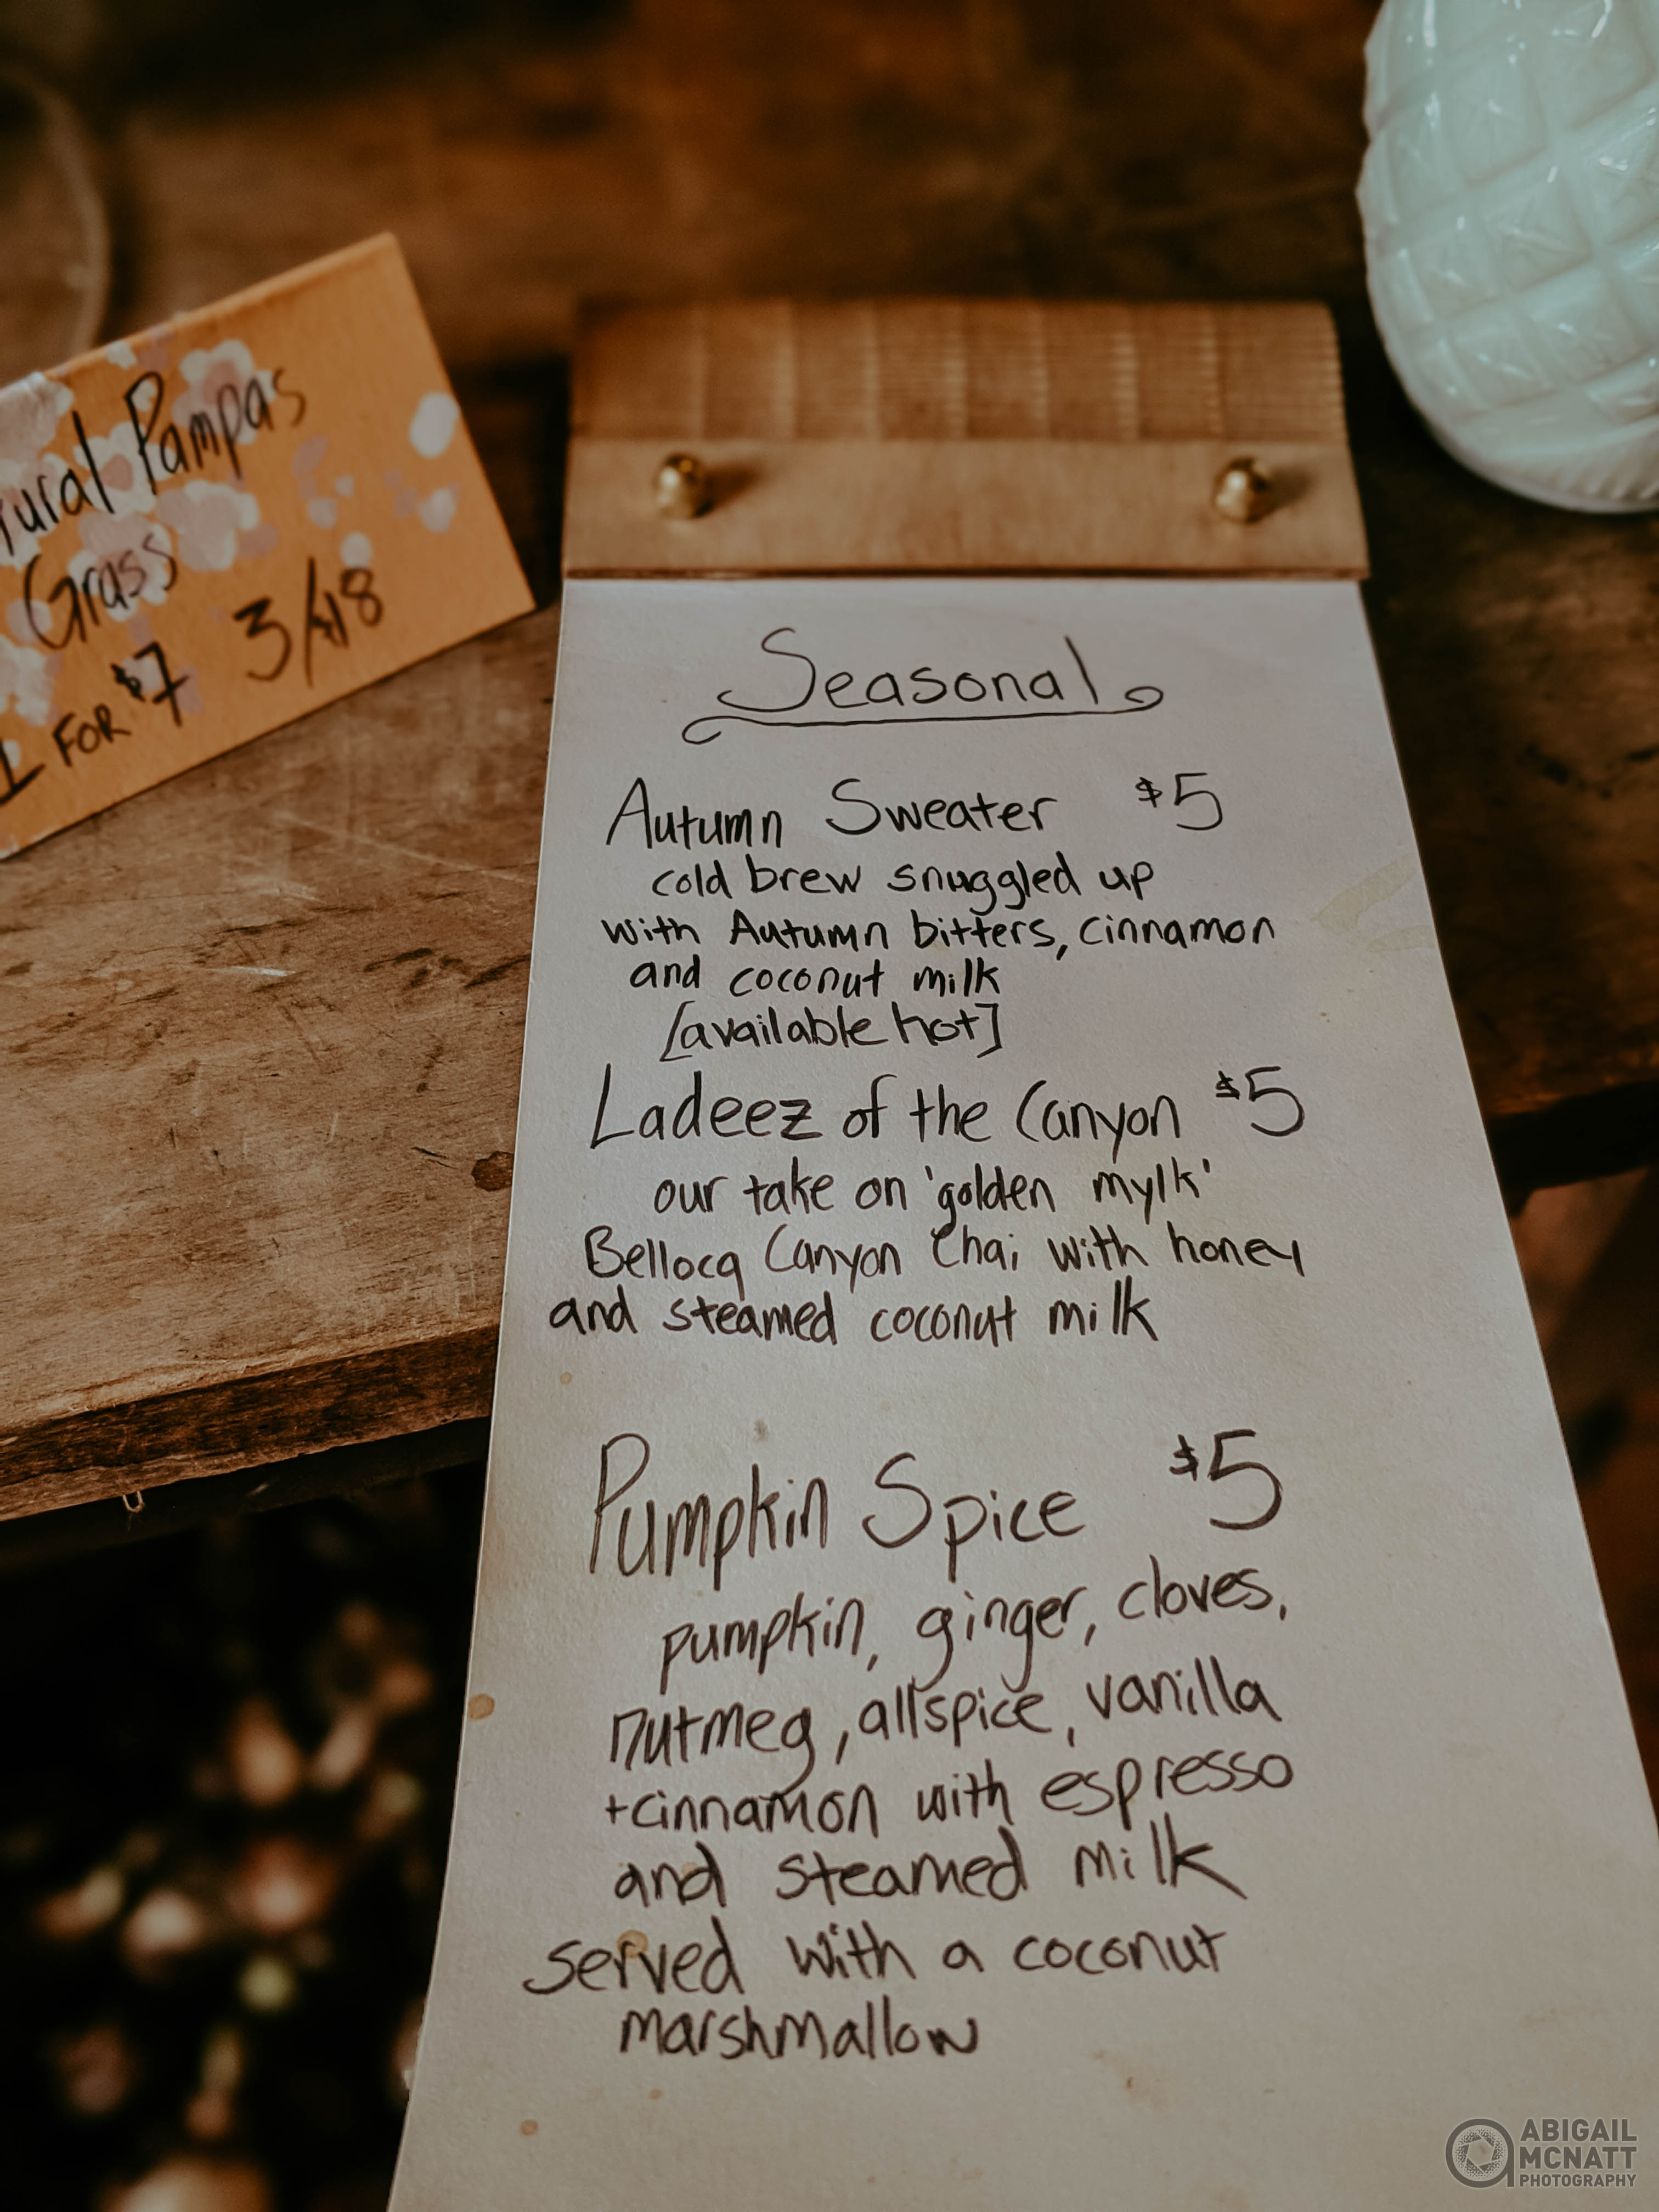 Pampas
Grass
1 FOR $7 3/$18
Seasonal
Autumn Sweater $5
cold brew snuggled up
with Autumn bitters, cinnamon
and coconut milk
[available hot]
Ladeez of the Canyon $5
our take on 'golden mylk'
Bellocq Canyon Chai with honey
and steamed coconut milk
Pumpkin Spice $5
pumpkin, ginger, cloves,
nutmeg, allspice, vanilla
+cinnamon with espresso
and steamed milk
served with a coconut
marshmallow
ABIGAIL
MCNATT
PHOTOGRAPHY